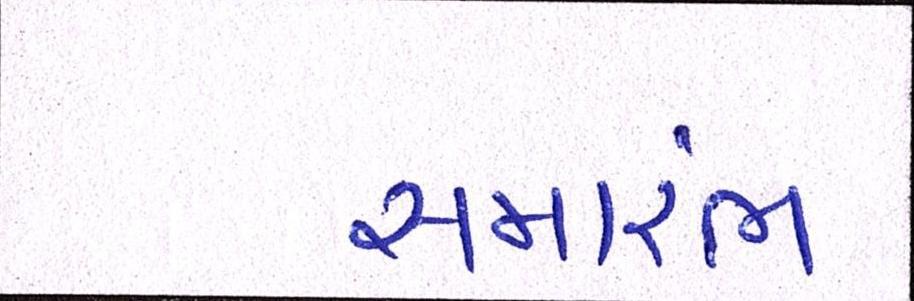 સમારંભ